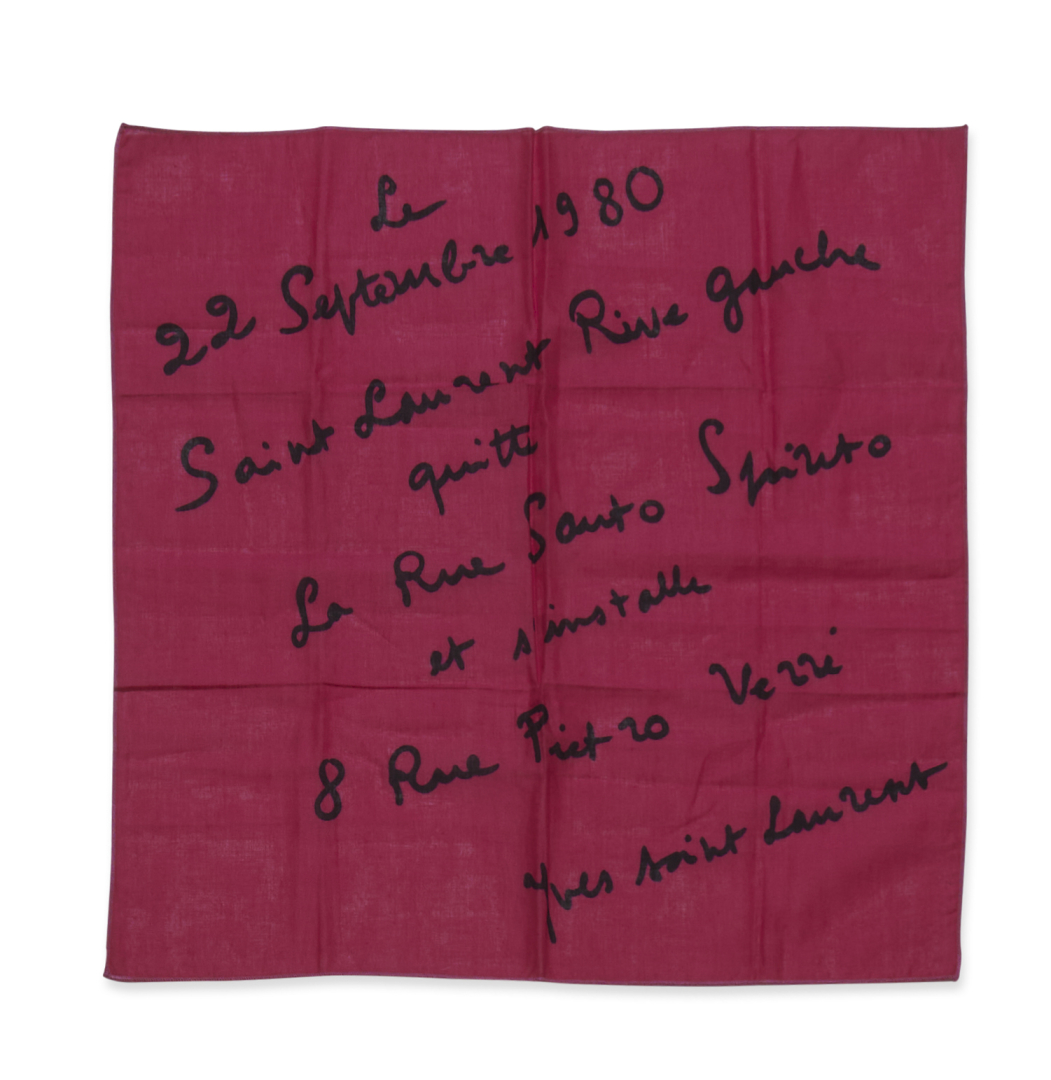 Le
22 Septembre 1980
Saint Laurent Rive gauche
quitte
La Rue Santo Spirito
et s'installe
8 Rue Pietro Verri
yves saint Laurent